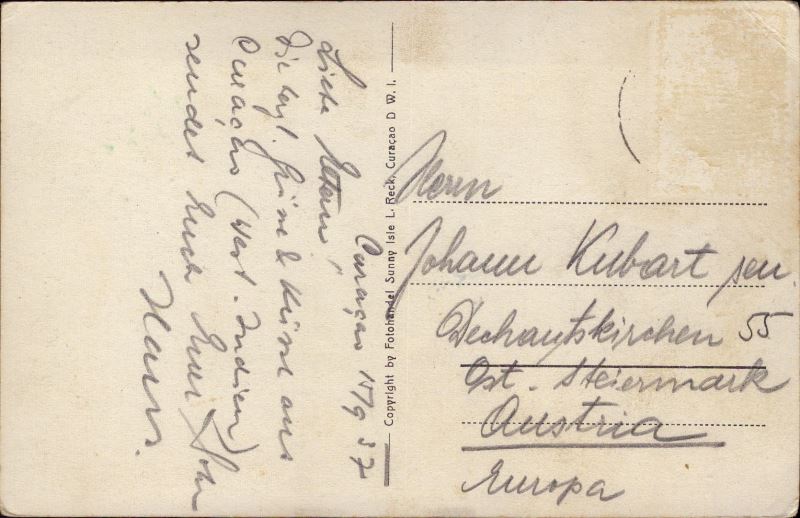 Curaçao 15/9 37
Liebe Eltern!
Die herzl. Grüsse & Küsse aus
Curaçao (West-Indien)
sendet Euch Euer Sohn
Hans.
Copyright by Fotohandel Sunny Isle L. Reck, Curaçao D. W. I.
Herrn
Johann Kubart sen.
Dechantskirchen 55
Ost-Steiermark
Austria
Europa